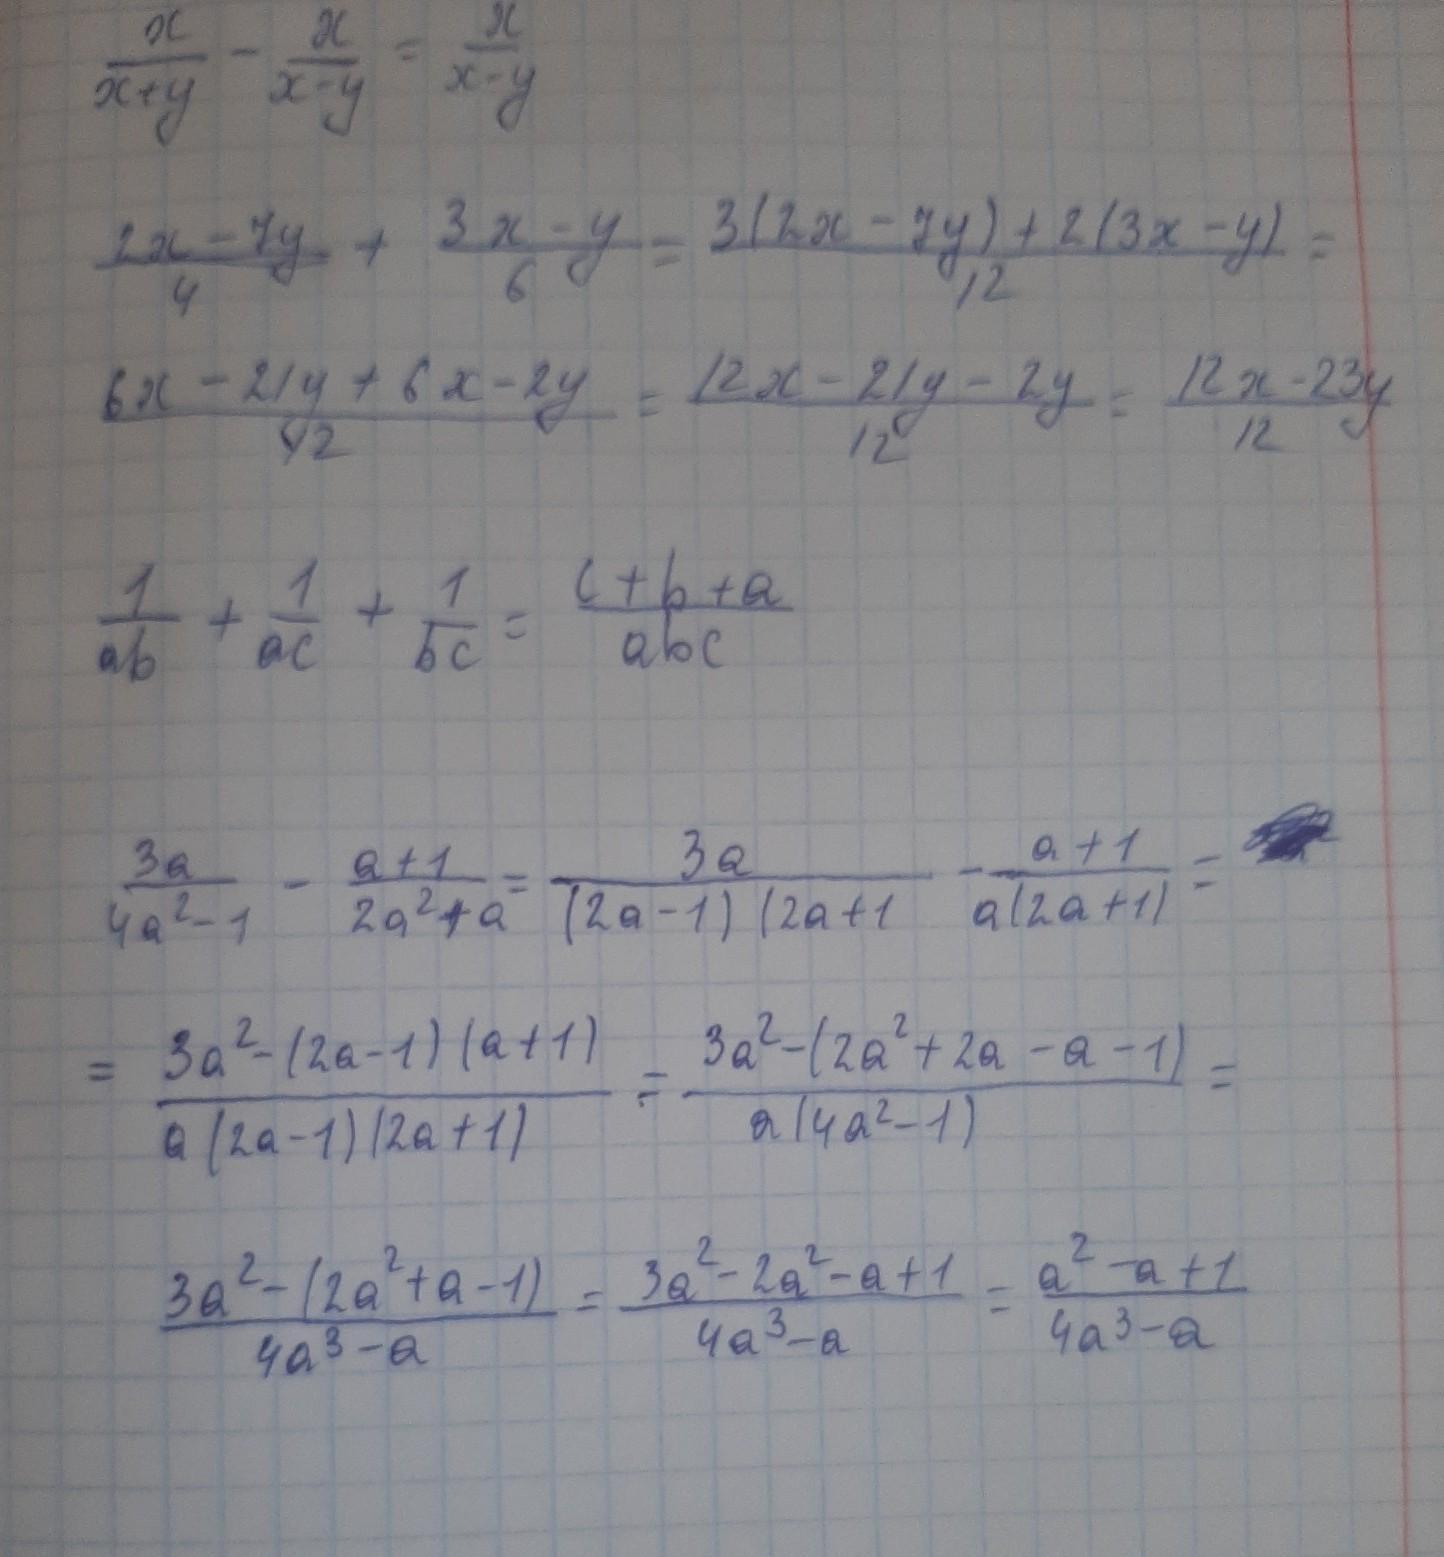 x/(x+y) - x/(x-y) = x/(x-y)
(2x-7y)/4 + (3x-y)/6 = (3(2x-7y)+2(3x-y))/12 =
(6x-21y+6x-2y)/12 = (12x-21y-2y)/12 = (12x-23y)/12
1/(ab) + 1/(ac) + 1/(bc) = (c+b+a)/(abc)
3a/(4a²-1) - (a+1)/(2a²+a) = 3a/((2a-1)(2a+1) - (a+1)/(a(2a+1)) =
= (3a²-(2a-1)(a+1))/(a(2a-1)(2a+1)) = (3a²-(2a²+2a-a-1))/(a(4a²-1)) =
(3a²-(2a²+a-1))/(4a³-a) = (3a²-2a²-a+1)/(4a³-a) = (a²-a+1)/(4a³-a)